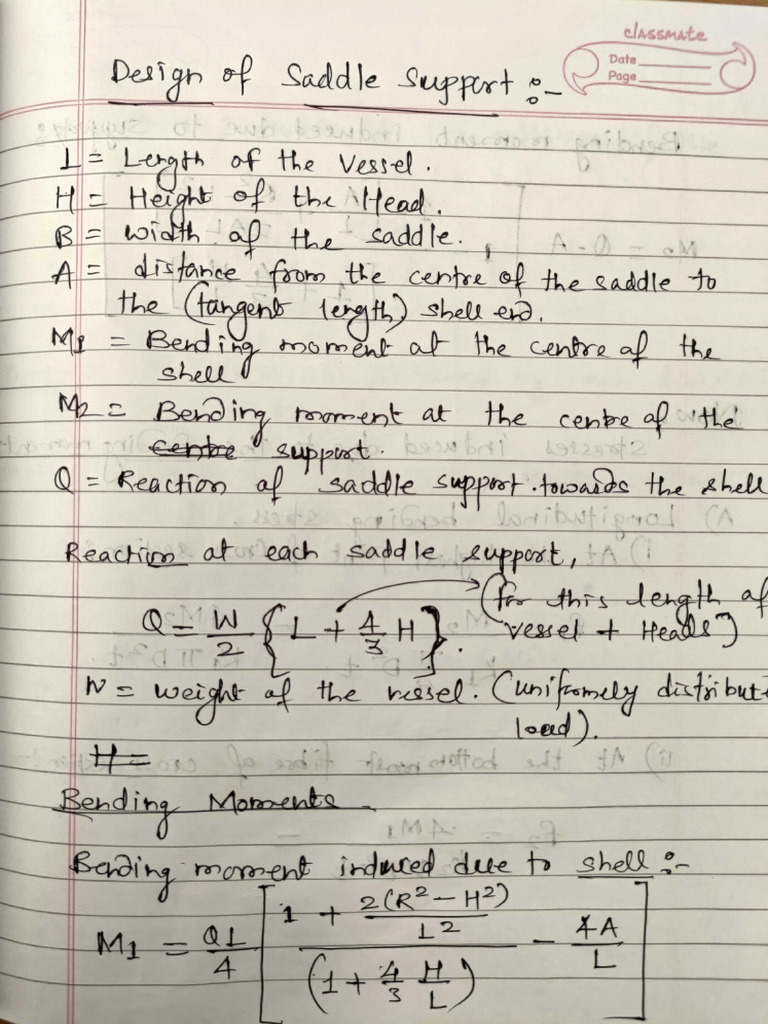 classmate
Date
Page
Design of Saddle Support :-
L = Length of the Vessel.
H = Height of the Head.
B = width of the saddle.
A = distance from the centre of the saddle to
the (tangent length) shell end.
M1 = Bending moment at the centre of the
shell
M2 = Bending moment at the centre of the
centre support.
Q = Reaction of saddle support towards the shell
Reaction at each saddle support,
Q = W/2 { L + 4/3 H }. (for this length of
vessel + Heads)
W = weight of the vessel. (uniformely distribut
load).
H =
Bending Moments
Bending moment induced due to shell :-
M1 = QL/4 [ (1 + 2(R² - H²)/L²) / (1 + 4/3 H/L) - 4A/L ]